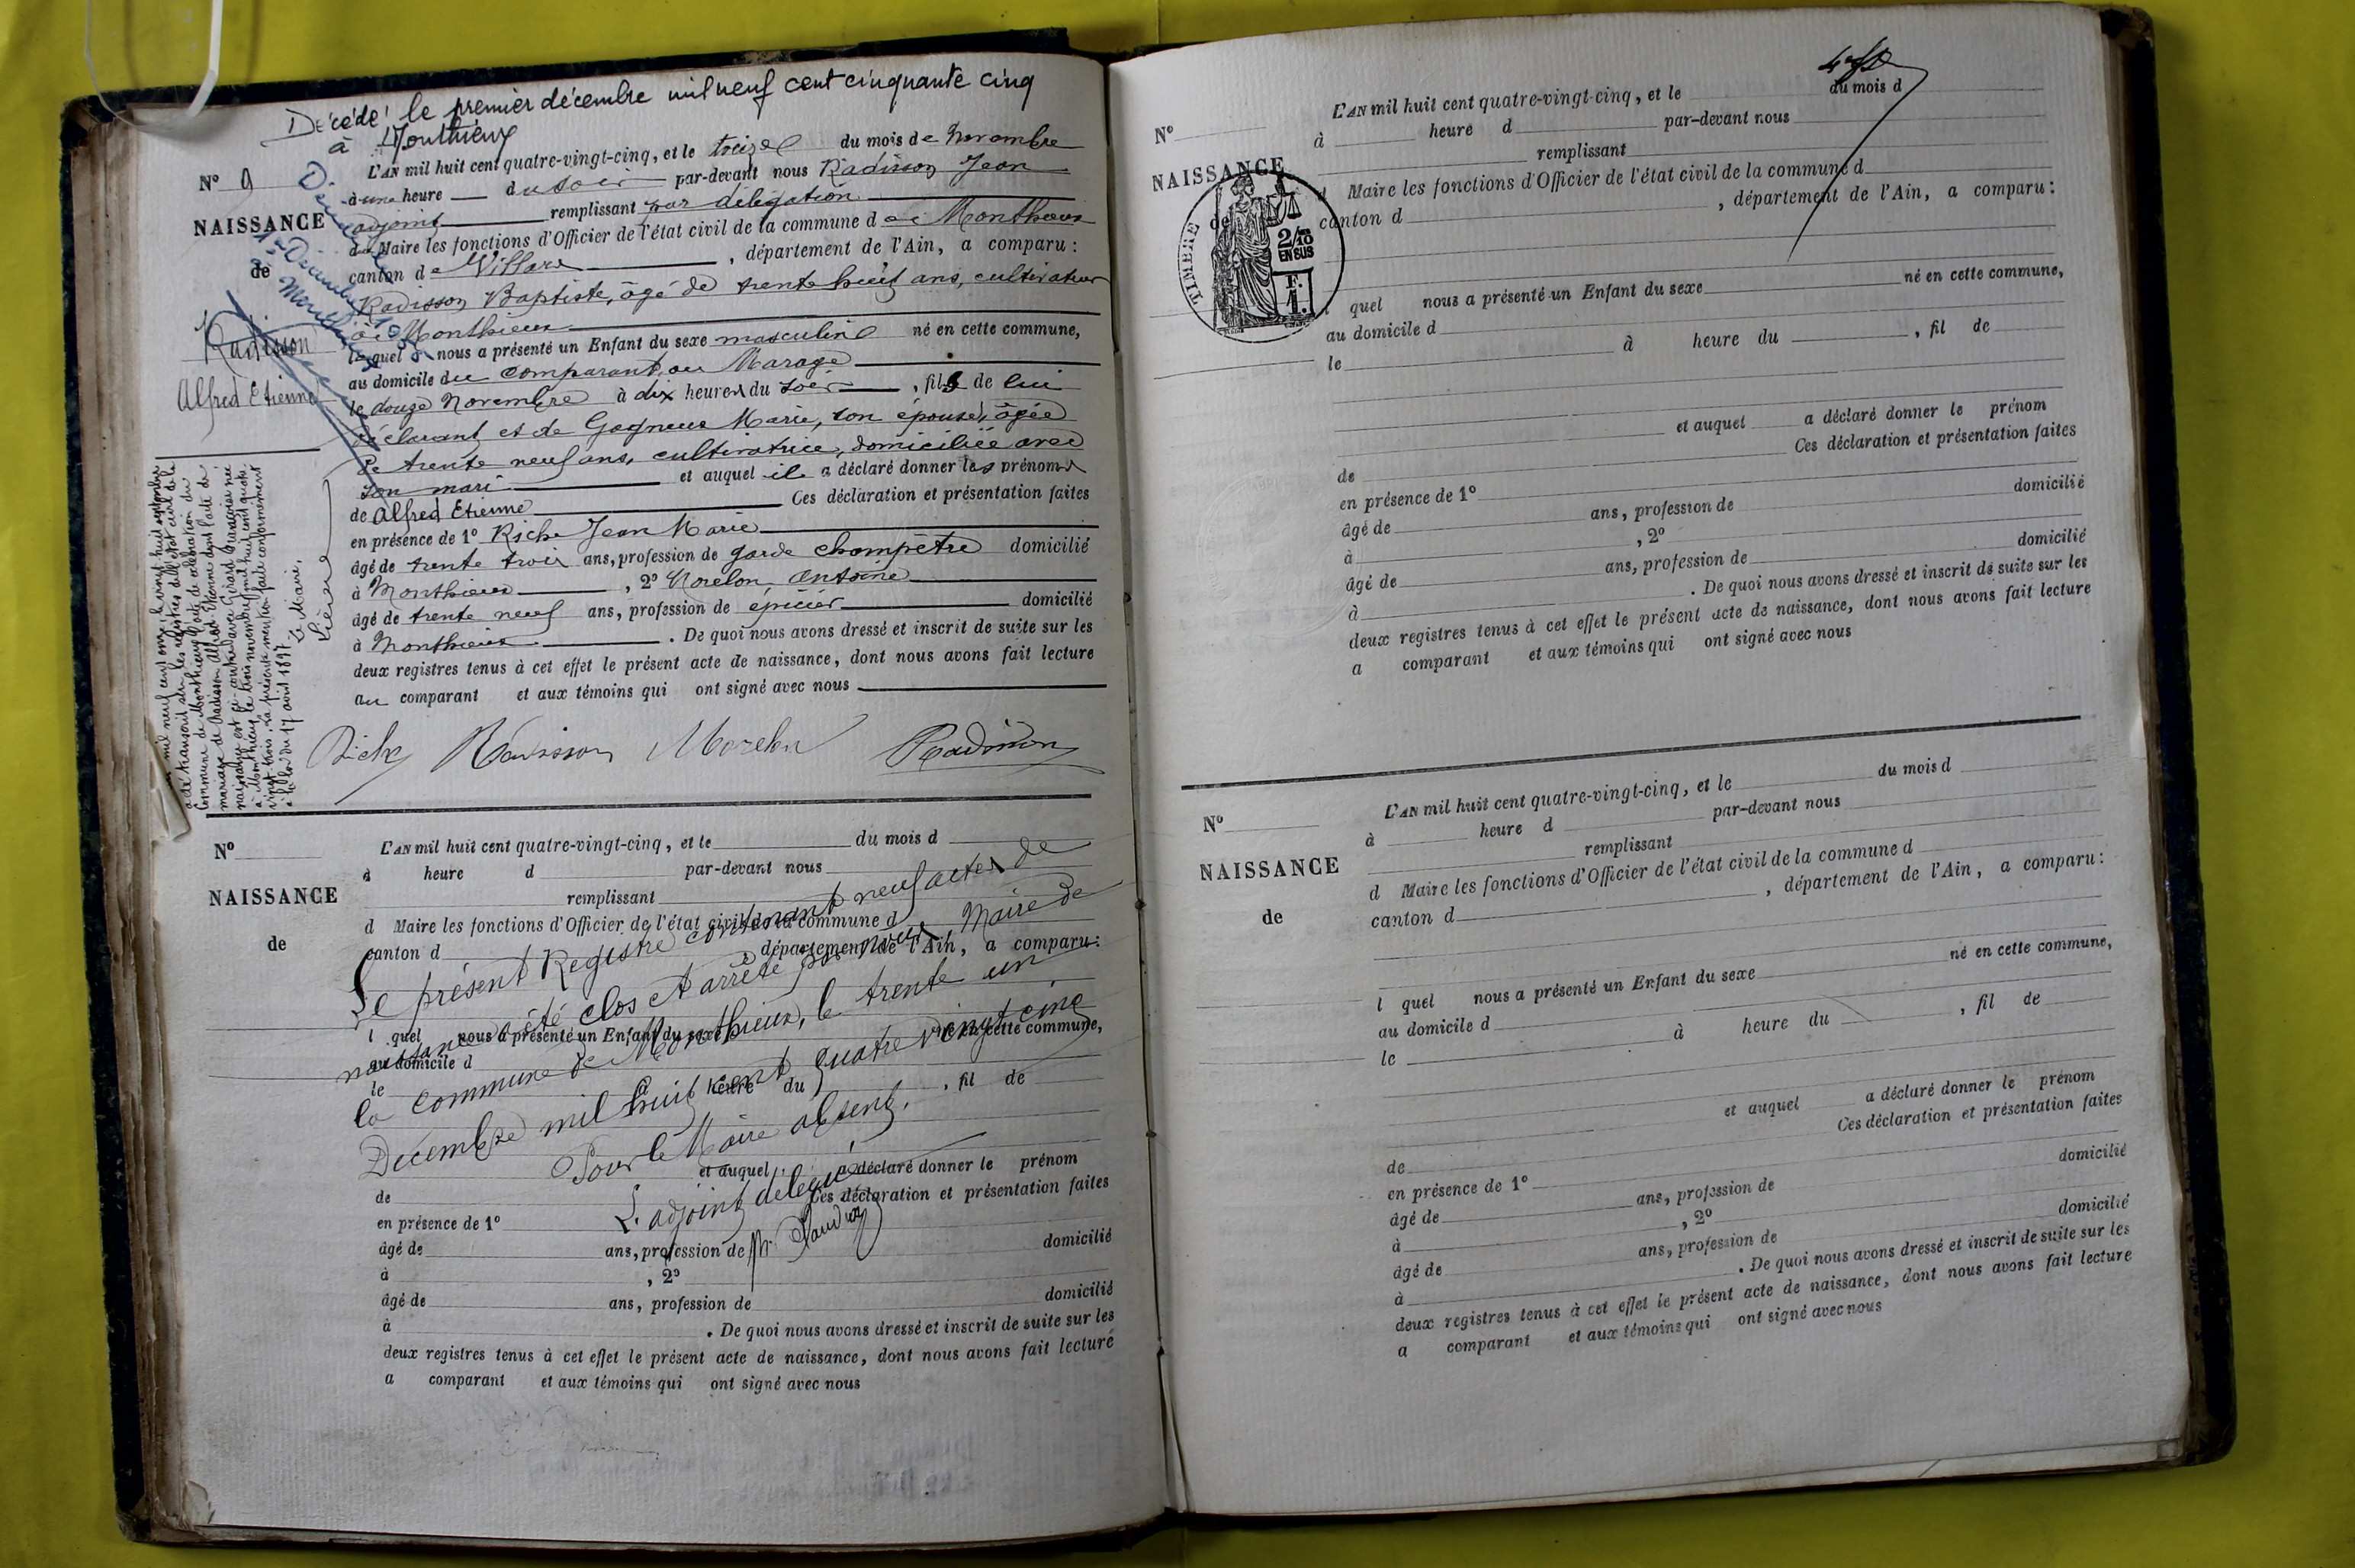 Décédé le premier décembre mil neuf cent cinquante cinq
à Monthieux
N° 9
NAISSANCE
de
Radisson
Alfred Etienne
L'AN mil huit cent quatre-vingt-cinq, et le treize du mois de Novembre
à une heure du soir par-devant nous Radisson Jean
adjoint remplissant par délégation
du Maire les fonctions d'Officier de l'état civil de la commune de Monthieux
canton de Villars, département de l'Ain, a comparu :
Radisson Baptiste, âgé de trente huit ans, cultivateur
à Monthieux
lequel nous a présenté un Enfant du sexe masculin né en cette commune,
au domicile du comparant au Marage
le douze Novembre à dix heures du soir, fils de lui
déclarant et de Gagneux Marie, son épouse, âgée
de trente neuf ans, cultivatrice, domiciliée avec
son mari et auquel il a déclaré donner les prénoms
de Alfred Etienne Ces déclaration et présentation faites
en présence de 1° Riche Jean Marie
âgé de trente trois ans, profession de garde champêtre domicilié
à Monthieux, 2° Morelon Antoine
âgé de trente neuf ans, profession de épicier domicilié
à Monthieux. De quoi nous avons dressé et inscrit de suite sur les
deux registres tenus à cet effet le présent acte de naissance, dont nous avons fait lecture
au comparant et aux témoins qui ont signé avec nous
Riche Radisson Morelon Radisson
mil neuf cent onze, le vingt huit septembre
a été transcrit sur les registres de l'état civil de la
Commune de Monthieux l'acte de célébration du
mariage de Radisson Alfred Etienne dont l'acte de
naissance est ci-contre avec Girard Françoise née
à Monthieux le trois novembre mil huit cent quatre
vingt trois. La présente mention faite conformément
à la loi du 17 août 1897.
Le Maire,
N°
NAISSANCE
de
L'AN mil huit cent quatre-vingt-cinq, et le du mois d
à heure d par-devant nous
remplissant
d Maire les fonctions d'Officier de l'état civil de la commune d
canton d , département de l'Ain, a comparu :
l quel nous a présenté un Enfant du sexe né en cette commune,
au domicile d
le à heure du , fil de
et auquel a déclaré donner le prénom
de Ces déclaration et présentation faites
en présence de 1°
âgé de ans, profession de domicilié
à , 2°
âgé de ans, profession de domicilié
à . De quoi nous avons dressé et inscrit de suite sur les
deux registres tenus à cet effet le présent acte de naissance, dont nous avons fait lecture
a comparant et aux témoins qui ont signé avec nous
Le présent Registre contenant neuf actes de
naissance a été clos et arrêté par nous, Maire de
la commune de Monthieux, le trente un
Décembre mil huit cent quatre vingt cinq
Pour le Maire absent,
L'adjoint délégué
N°
NAISSANCE
de
TIMBRE
2/10 EN SUS
F. 1.
L'AN mil huit cent quatre-vingt-cinq, et le du mois d
à heure d par-devant nous
remplissant
d Maire les fonctions d'Officier de l'état civil de la commune d
canton d , département de l'Ain, a comparu :
l quel nous a présenté un Enfant du sexe né en cette commune,
au domicile d
le à heure du , fil de
et auquel a déclaré donner le prénom
de Ces déclaration et présentation faites
en présence de 1°
âgé de ans, profession de domicilié
à , 2°
âgé de ans, profession de domicilié
à . De quoi nous avons dressé et inscrit de suite sur les
deux registres tenus à cet effet le présent acte de naissance, dont nous avons fait lecture
a comparant et aux témoins qui ont signé avec nous
N°
NAISSANCE
de
L'AN mil huit cent quatre-vingt-cinq, et le du mois d
à heure d par-devant nous
remplissant
d Maire les fonctions d'Officier de l'état civil de la commune d
canton d , département de l'Ain, a comparu :
l quel nous a présenté un Enfant du sexe né en cette commune,
au domicile d
le à heure du , fil de
et auquel a déclaré donner le prénom
de Ces déclaration et présentation faites
en présence de 1°
âgé de ans, profession de domicilié
à , 2°
âgé de ans, profession de domicilié
à . De quoi nous avons dressé et inscrit de suite sur les
deux registres tenus à cet effet le présent acte de naissance, dont nous avons fait lecture
a comparant et aux témoins qui ont signé avec nous